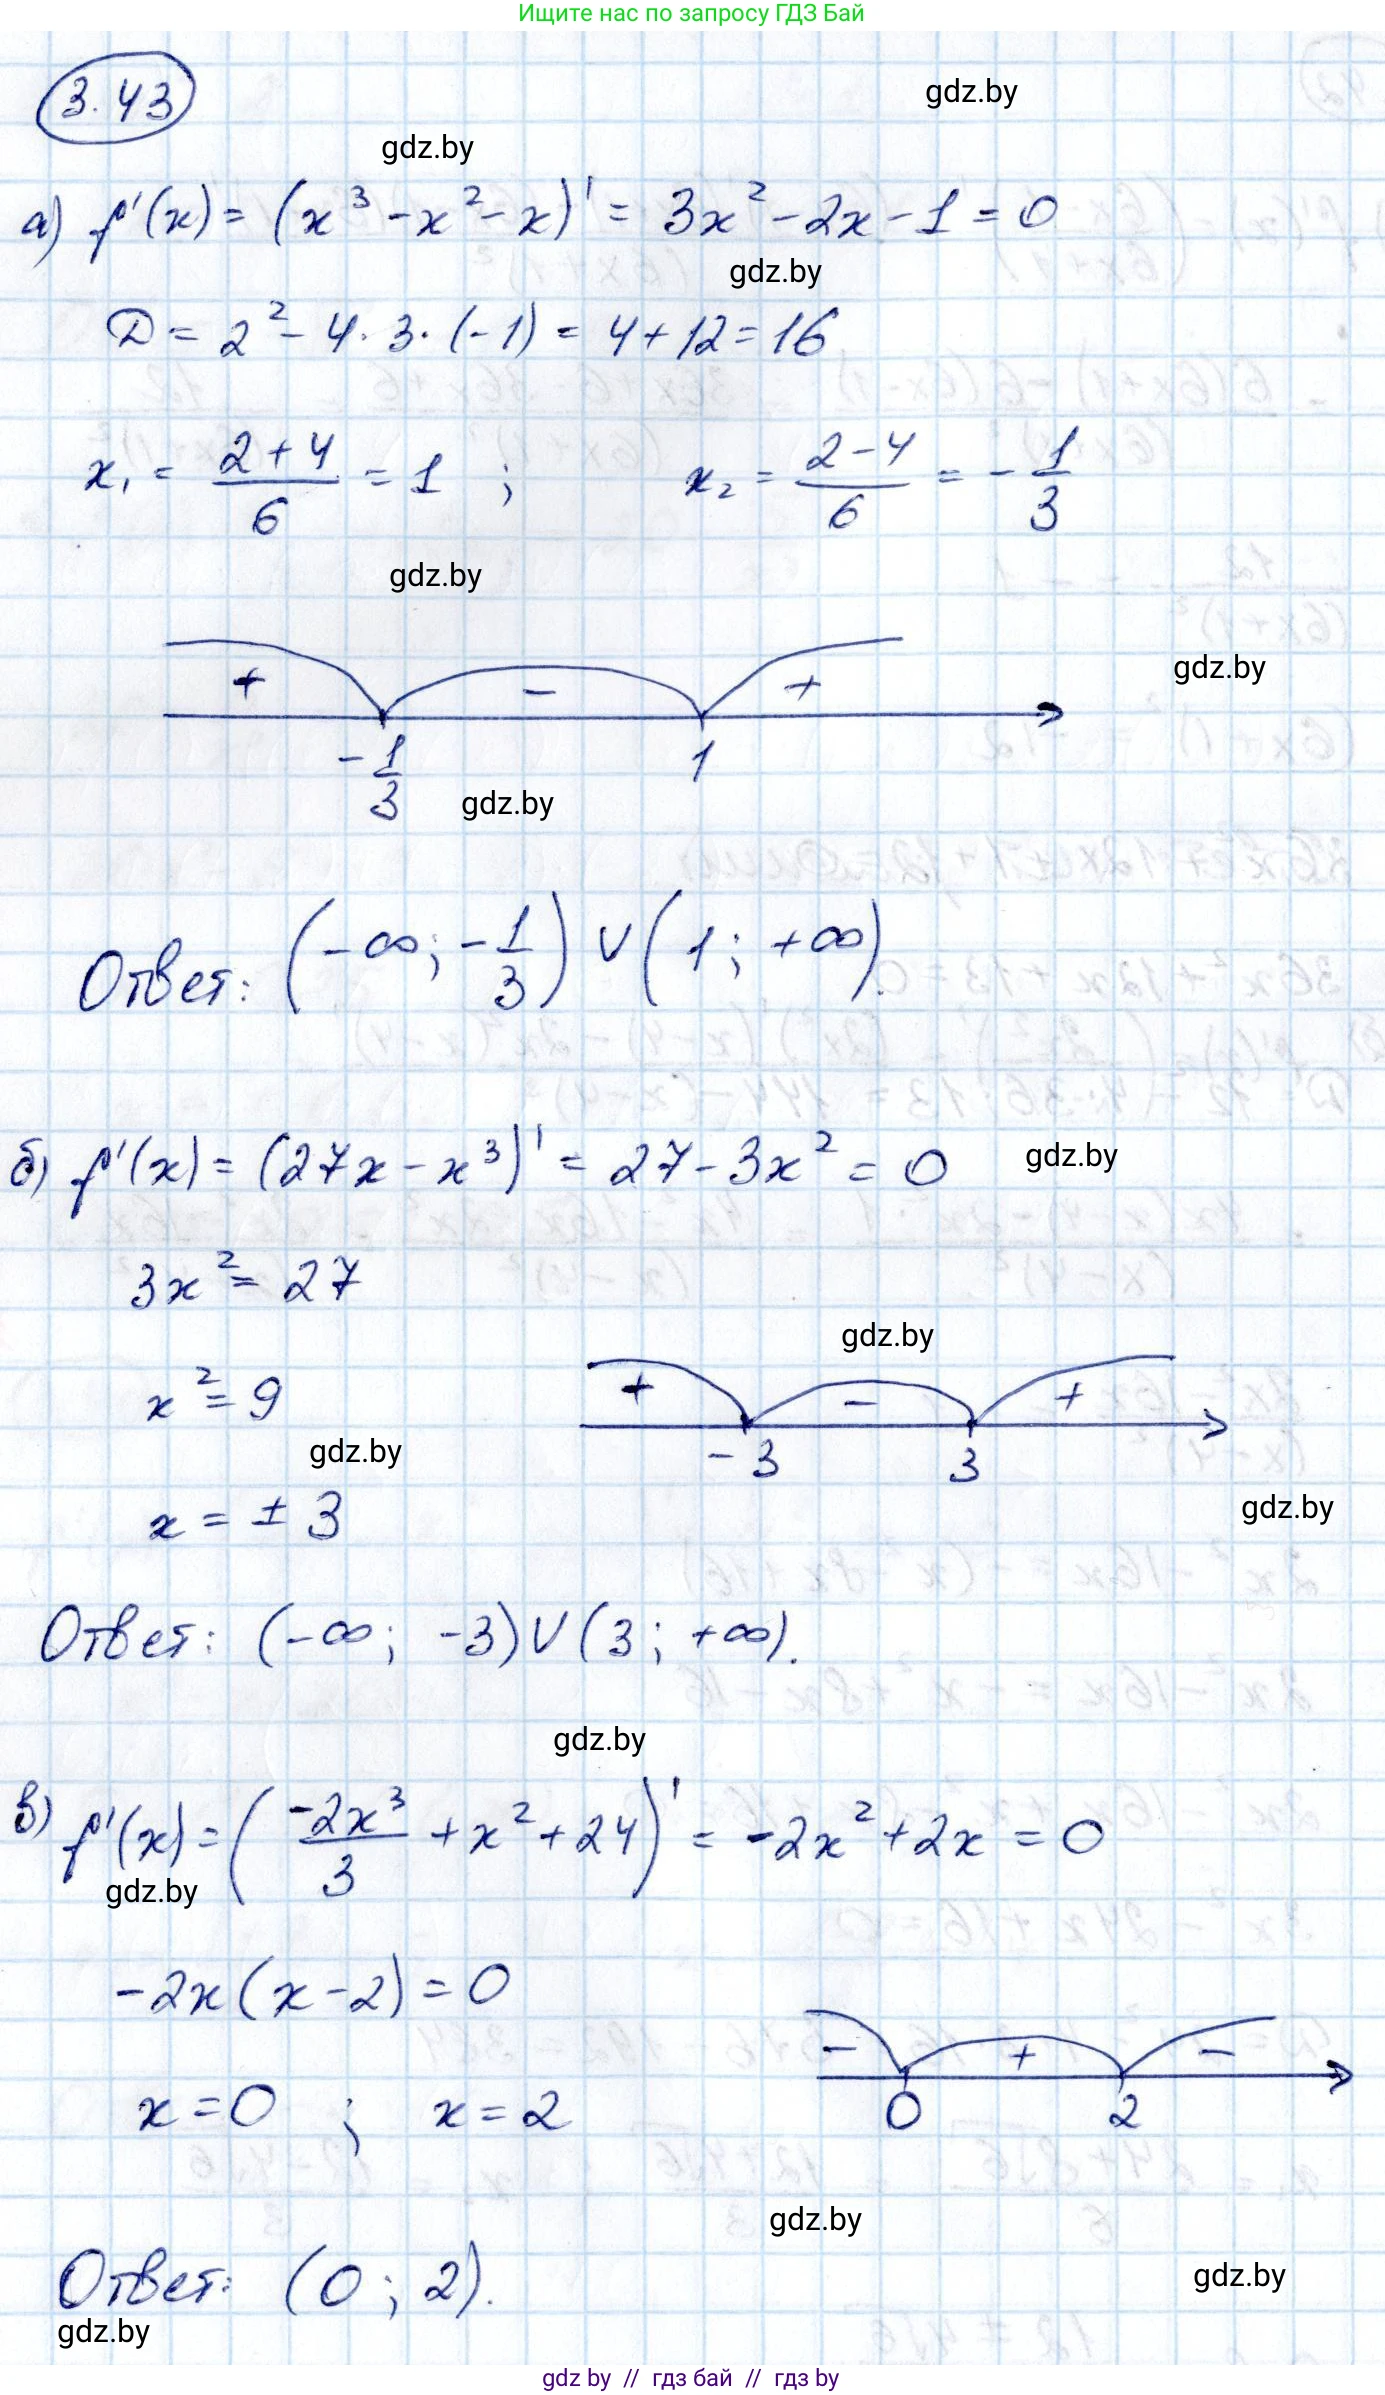 Ищите нас по запросу ГДЗ Бай
3.43
gdz.by
gdz.by
а) f'(x) = (x³ - x² - x)' = 3x² - 2x - 1 = 0
gdz.by
D = 2² - 4 · 3 · (-1) = 4 + 12 = 16
x₁ = (2 + 4)/6 = 1 ; x₂ = (2 - 4)/6 = - 1/3
gdz.by
gdz.by
+ - +
- 1/3 1
gdz.by
Ответ: (-∞; - 1/3) ∨ (1; +∞).
б) f'(x) = (27x - x³)' = 27 - 3x² = 0
gdz.by
3x² = 27
gdz.by
x² = 9
+ - +
gdz.by
- 3 3
gdz.by
x = ± 3
Ответ: (-∞; -3) ∨ (3; +∞).
gdz.by
в) f'(x) = (-2x³/3 + x² + 24)' = -2x² + 2x = 0
gdz.by
-2x(x - 2) = 0
- + -
x = 0 ; x = 2
0 2
gdz.by
gdz.by
Ответ: (0; 2).
gdz.by
gdz by // гдз бай // гдз by